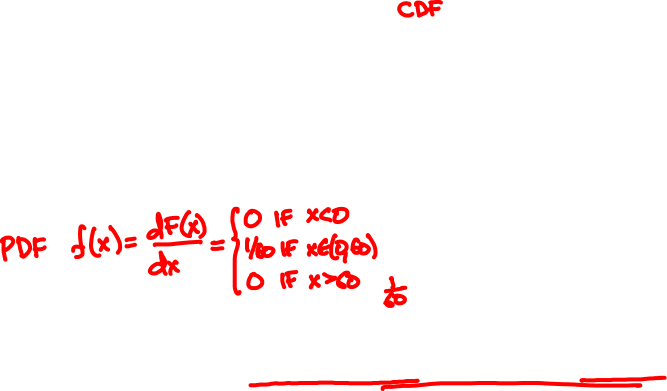 CDF
PDF f(x) = dF(x)/dx = { 0 IF x<0
1/60 IF x∈(0,60)
0 IF x>60
1/60